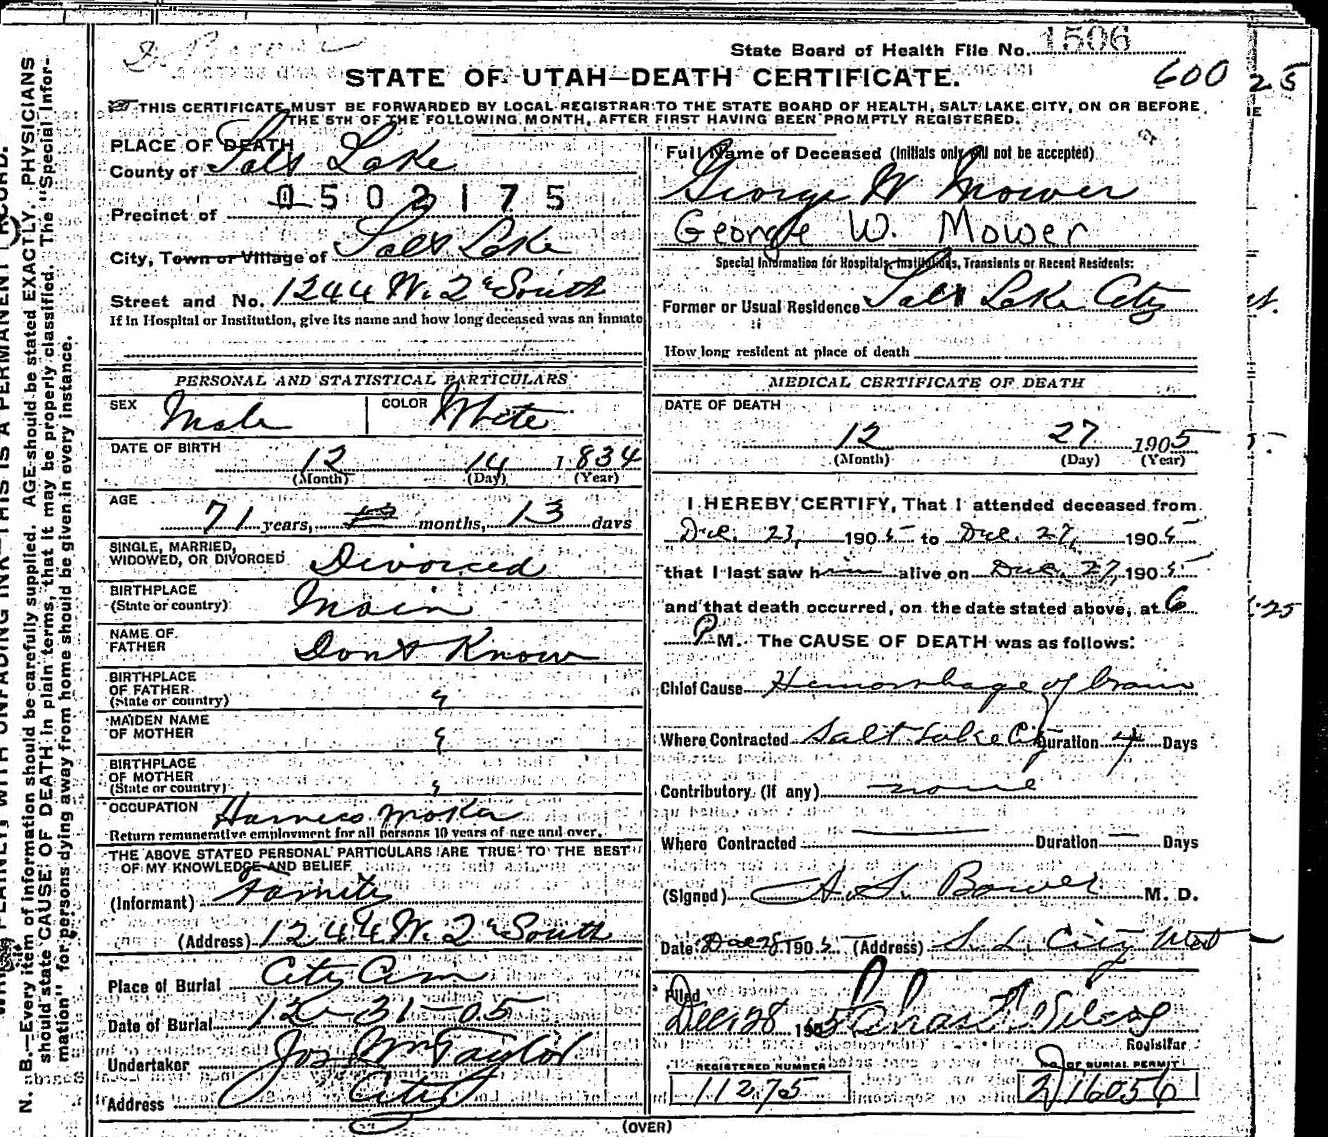 State Board of Health File No. 1506
STATE OF UTAH—DEATH CERTIFICATE.
600 25
THIS CERTIFICATE MUST BE FORWARDED BY LOCAL REGISTRAR TO THE STATE BOARD OF HEALTH, SALT LAKE CITY, ON OR BEFORE
THE 5TH OF THE FOLLOWING MONTH, AFTER FIRST HAVING BEEN PROMPTLY REGISTERED.
PLACE OF DEATH
County of Salt Lake
0502175
Precinct of
City, Town or Village of Salt Lake
Street and No. 1244 W. 2d South
If in Hospital or Institution, give its name and how long deceased was an inmate
Full Name of Deceased (Initials only will not be accepted)
George W Mower
George W. Mower
Special Information for Hospitals, Institutions, Transients or Recent Residents:
Former or Usual Residence Salt Lake City
How long resident at place of death
PERSONAL AND STATISTICAL PARTICULARS
SEX Male COLOR White
DATE OF BIRTH 12 14 1834
(Month) (Day) (Year)
AGE 71 years, months, 13 days
SINGLE, MARRIED,
WIDOWED, OR DIVORCED Divorced
BIRTHPLACE
(State or country) Main
NAME OF
FATHER Dont Know
BIRTHPLACE
OF FATHER
(State or country) "
MAIDEN NAME
OF MOTHER "
BIRTHPLACE
OF MOTHER
(State or country) "
OCCUPATION Harness Maker
Return remunerative employment for all persons 10 years of age and over.
THE ABOVE STATED PERSONAL PARTICULARS ARE TRUE TO THE BEST
OF MY KNOWLEDGE AND BELIEF
(Informant) Family
(Address) 1244 W. 2d South
Place of Burial City Cem
Date of Burial 12-31-05
Undertaker Jos Wm Taylor
Address City
MEDICAL CERTIFICATE OF DEATH
DATE OF DEATH
12 27 1905
(Month) (Day) (Year)
I HEREBY CERTIFY, That I attended deceased from
Dec. 23, 1905 to Dec. 27, 1905
that I last saw him alive on Dec. 27, 1905
and that death occurred, on the date stated above, at 6
P M. The CAUSE OF DEATH was as follows:
Chief Cause Hemorrhage of brain
Where Contracted Salt Lake City Duration 4 Days
Contributory (If any) none
Where Contracted Duration Days
(Signed) A. S. Bower M. D.
Date Dec 28 1905 (Address) S. L. City Utah
Filed
Dec 28 1905 Chas F Wilcox
Registrar
REGISTERED NUMBER
11275
No. OF BURIAL PERMIT
D16056
(OVER)
N. B.—Every item of information should be carefully supplied. AGE should be stated EXACTLY. PHYSICIANS
should state CAUSE OF DEATH in plain terms, that it may be properly classified. The "Special Infor-
mation" for persons dying away from home should be given in every instance.
PLAINLY WITH UNFADING INK—THIS IS A PERMANENT RECORD.